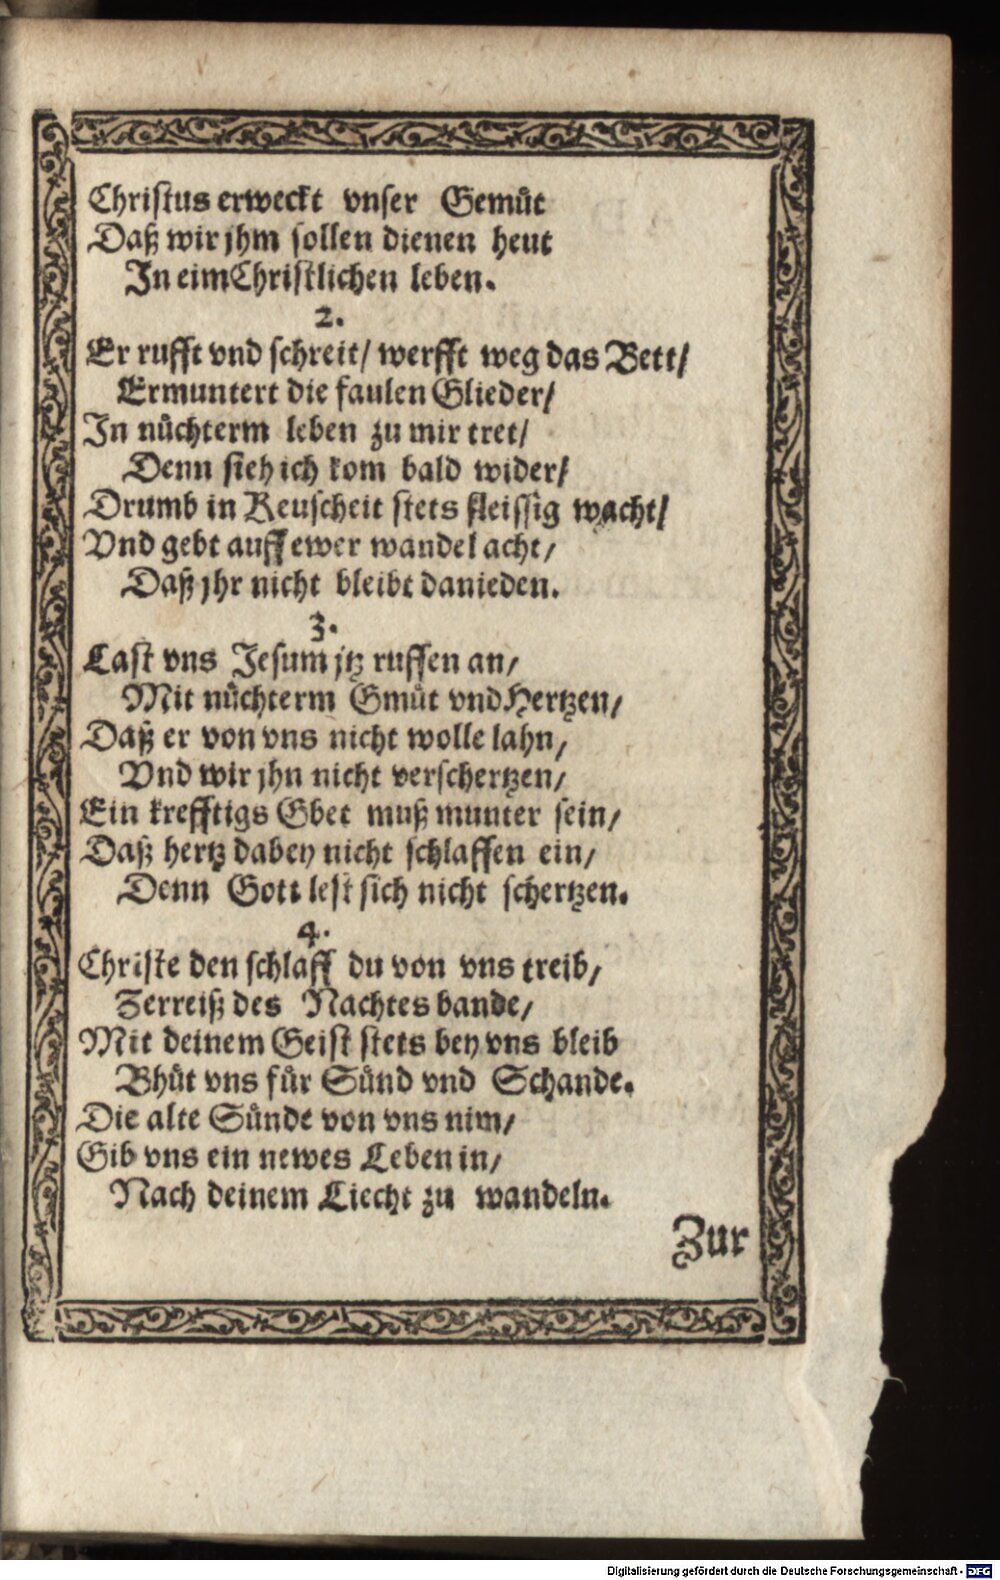 Christus erweckt vnser Gemuͤt
Daß wir jhm sollen dienen heut
In eim Christlichen leben.
2.
Er rufft vnd schreit/ werfft weg das Bett/
Ermuntert die faulen Glieder/
In nuͤchterm leben zu mir tret/
Denn sieh ich kom bald wider/
Drumb in Keuscheit stets fleissig wacht/
Vnd gebt auff ewer wandel acht/
Daß jhr nicht bleibt danieden.
3.
Last vns Jesum jtz ruffen an/
Mit nuͤchterm Gmuͤt vnd Hertzen/
Daß er von vns nicht wolle lahn/
Vnd wir jhn nicht verschertzen/
Ein krefftigs Gbet muß munter sein/
Daß hertz dabey nicht schlaffen ein/
Denn Gott lest sich nicht schertzen.
4.
Christe den schlaff du von vns treib/
Zerreiß des Nachtes bande/
Mit deinem Geist stets bey vns bleib
Bhuͤt vns fuͤr Suͤnd vnd Schande.
Die alte Suͤnde von vns nim/
Gib vns ein newes Leben in/
Nach deinem Liecht zu wandeln.
Zur
Digitalisierung gefördert durch die Deutsche Forschungsgemeinschaft - DFG